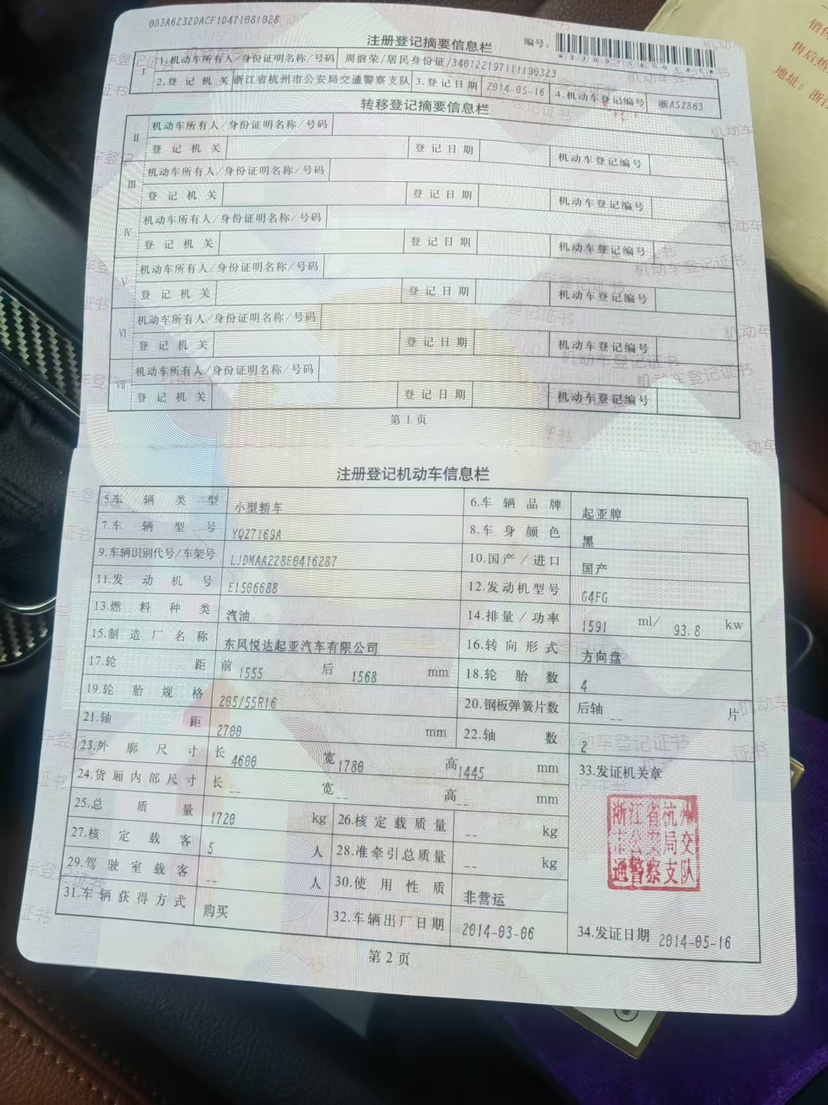 003A6232DACF1D471081028
注册登记摘要信息栏
编号:
I 1.机动车所有人/身份证明名称/号码 周前荣/居民身份证/340122197111190323
2.登记机关 浙江省杭州市公安局交通警察支队 3.登记日期 2014-05-16 4.机动车登记编号 浙ASZ863
转移登记摘要信息栏
II 机动车所有人/身份证明名称/号码
登记机关 登记日期 机动车登记编号
III 机动车所有人/身份证明名称/号码
登记机关 登记日期 机动车登记编号
IV 机动车所有人/身份证明名称/号码
登记机关 登记日期 机动车登记编号
V 机动车所有人/身份证明名称/号码
登记机关 登记日期 机动车登记编号
VI 机动车所有人/身份证明名称/号码
登记机关 登记日期 机动车登记编号
VII 机动车所有人/身份证明名称/号码
登记机关 登记日期 机动车登记编号
第1页
注册登记机动车信息栏
5.车辆类型 小型轿车 6.车辆品牌 起亚牌
7.车辆型号 YQZ7169A 8.车身颜色 黑
9.车辆识别代号/车架号 LJDMAA228E0416287 10.国产/进口 国产
11.发动机号 E1506688 12.发动机型号 G4FG
13.燃料种类 汽油 14.排量/功率 1591 ml/ 93.8 kw
15.制造厂名称 东风悦达起亚汽车有限公司 16.转向形式 方向盘
17.轮距 前 1555 后 1568 mm 18.轮胎数 4
19.轮胎规格 205/55R16 20.钢板弹簧片数 后轴 -- 片
21.轴距 2700 mm 22.轴数 2
23.外廓尺寸 长 4600 宽 1780 高 1445 mm 33.发证机关章
24.货厢内部尺寸 长 -- 宽 -- 高 -- mm
25.总质量 1720 kg 26.核定载质量 -- kg
27.核定载客 5 人 28.准牵引总质量 -- kg
29.驾驶室载客 -- 人 30.使用性质 非营运
31.车辆获得方式 购买 32.车辆出厂日期 2014-03-06 34.发证日期 2014-05-16
浙江省杭州
市公安局交
通警察支队
第2页
售后热
地址:浙江